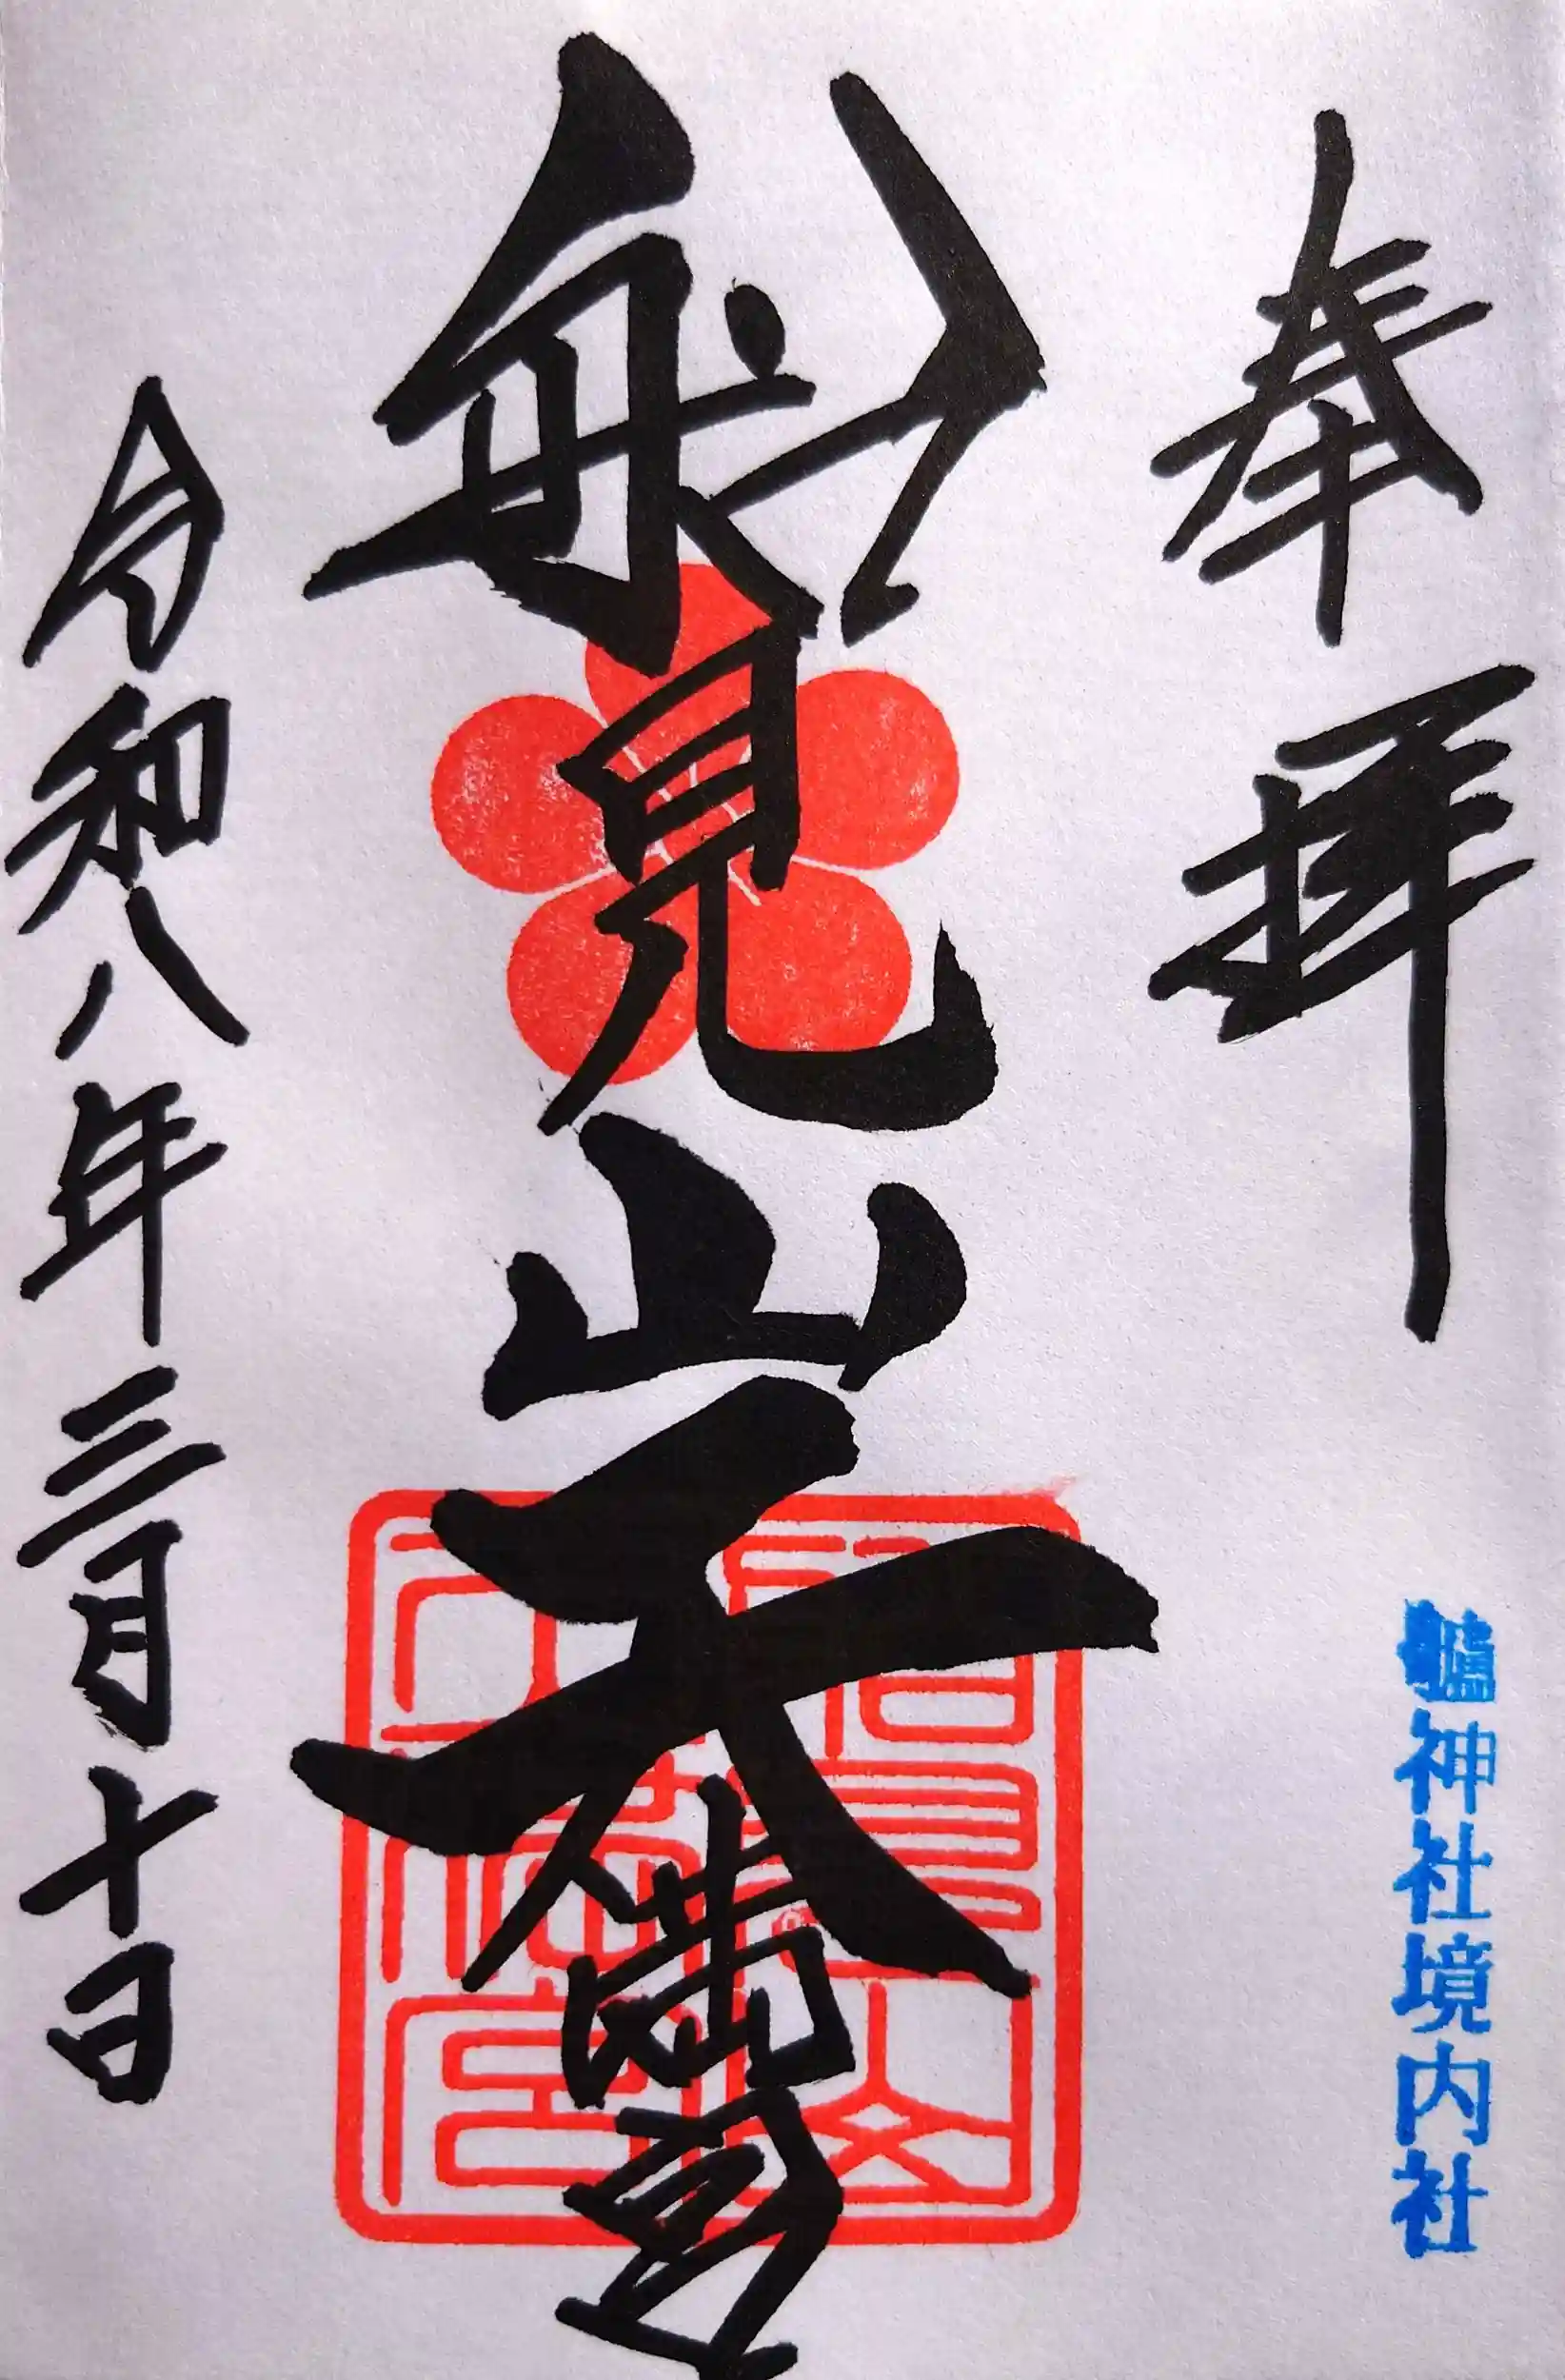 奉拝
鱸神社境内社
船見山天満宮
令和八年三月十日